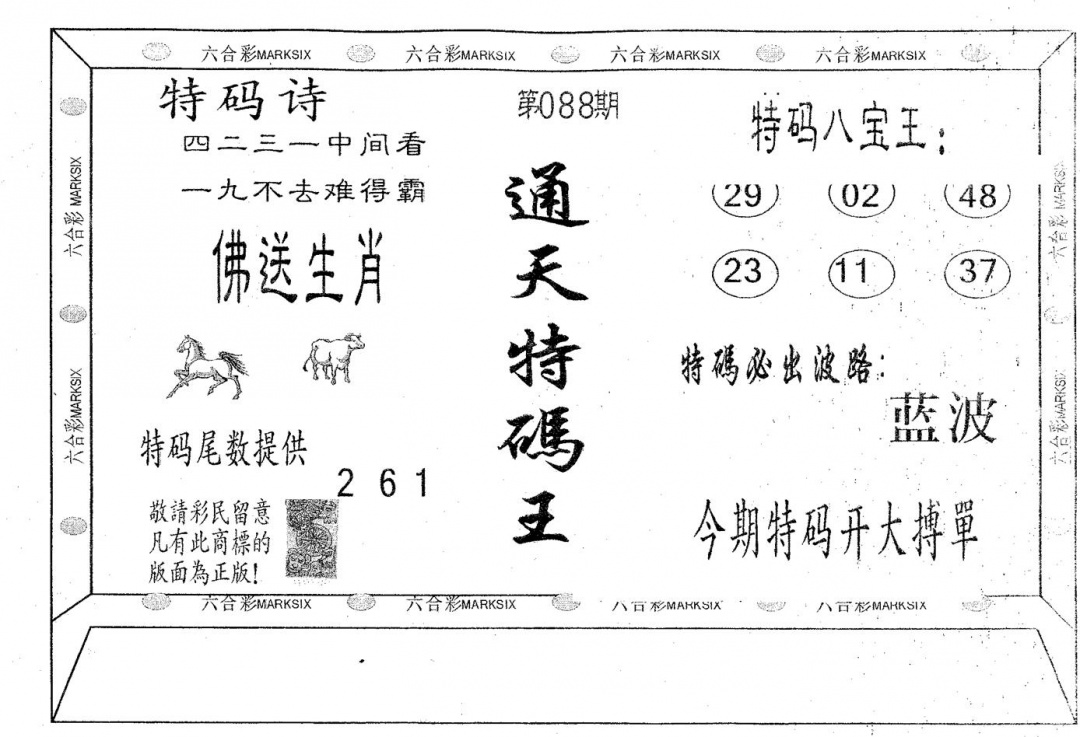 六合彩MARKSIX 六合彩MARKSIX 六合彩MARKSIX 六合彩MARKSIX
六合彩 MARKSIX
六合彩MARKSIX
特码诗
四二三一中间看
一九不去难得霸
佛送生肖
特码尾数提供
2 6 1
敬請彩民留意
凡有此商標的
版面為正版!
第088期
通天特碼王
特码八宝王:
29 02 48
23 11 37
特碼必出波路:
蓝波
今期特码开大搏單
六合彩 MARKSIX
六合彩MARKSIX
六合彩MARKSIX 六合彩MARKSIX 六合彩MARKSIX 六合彩MARKSIX